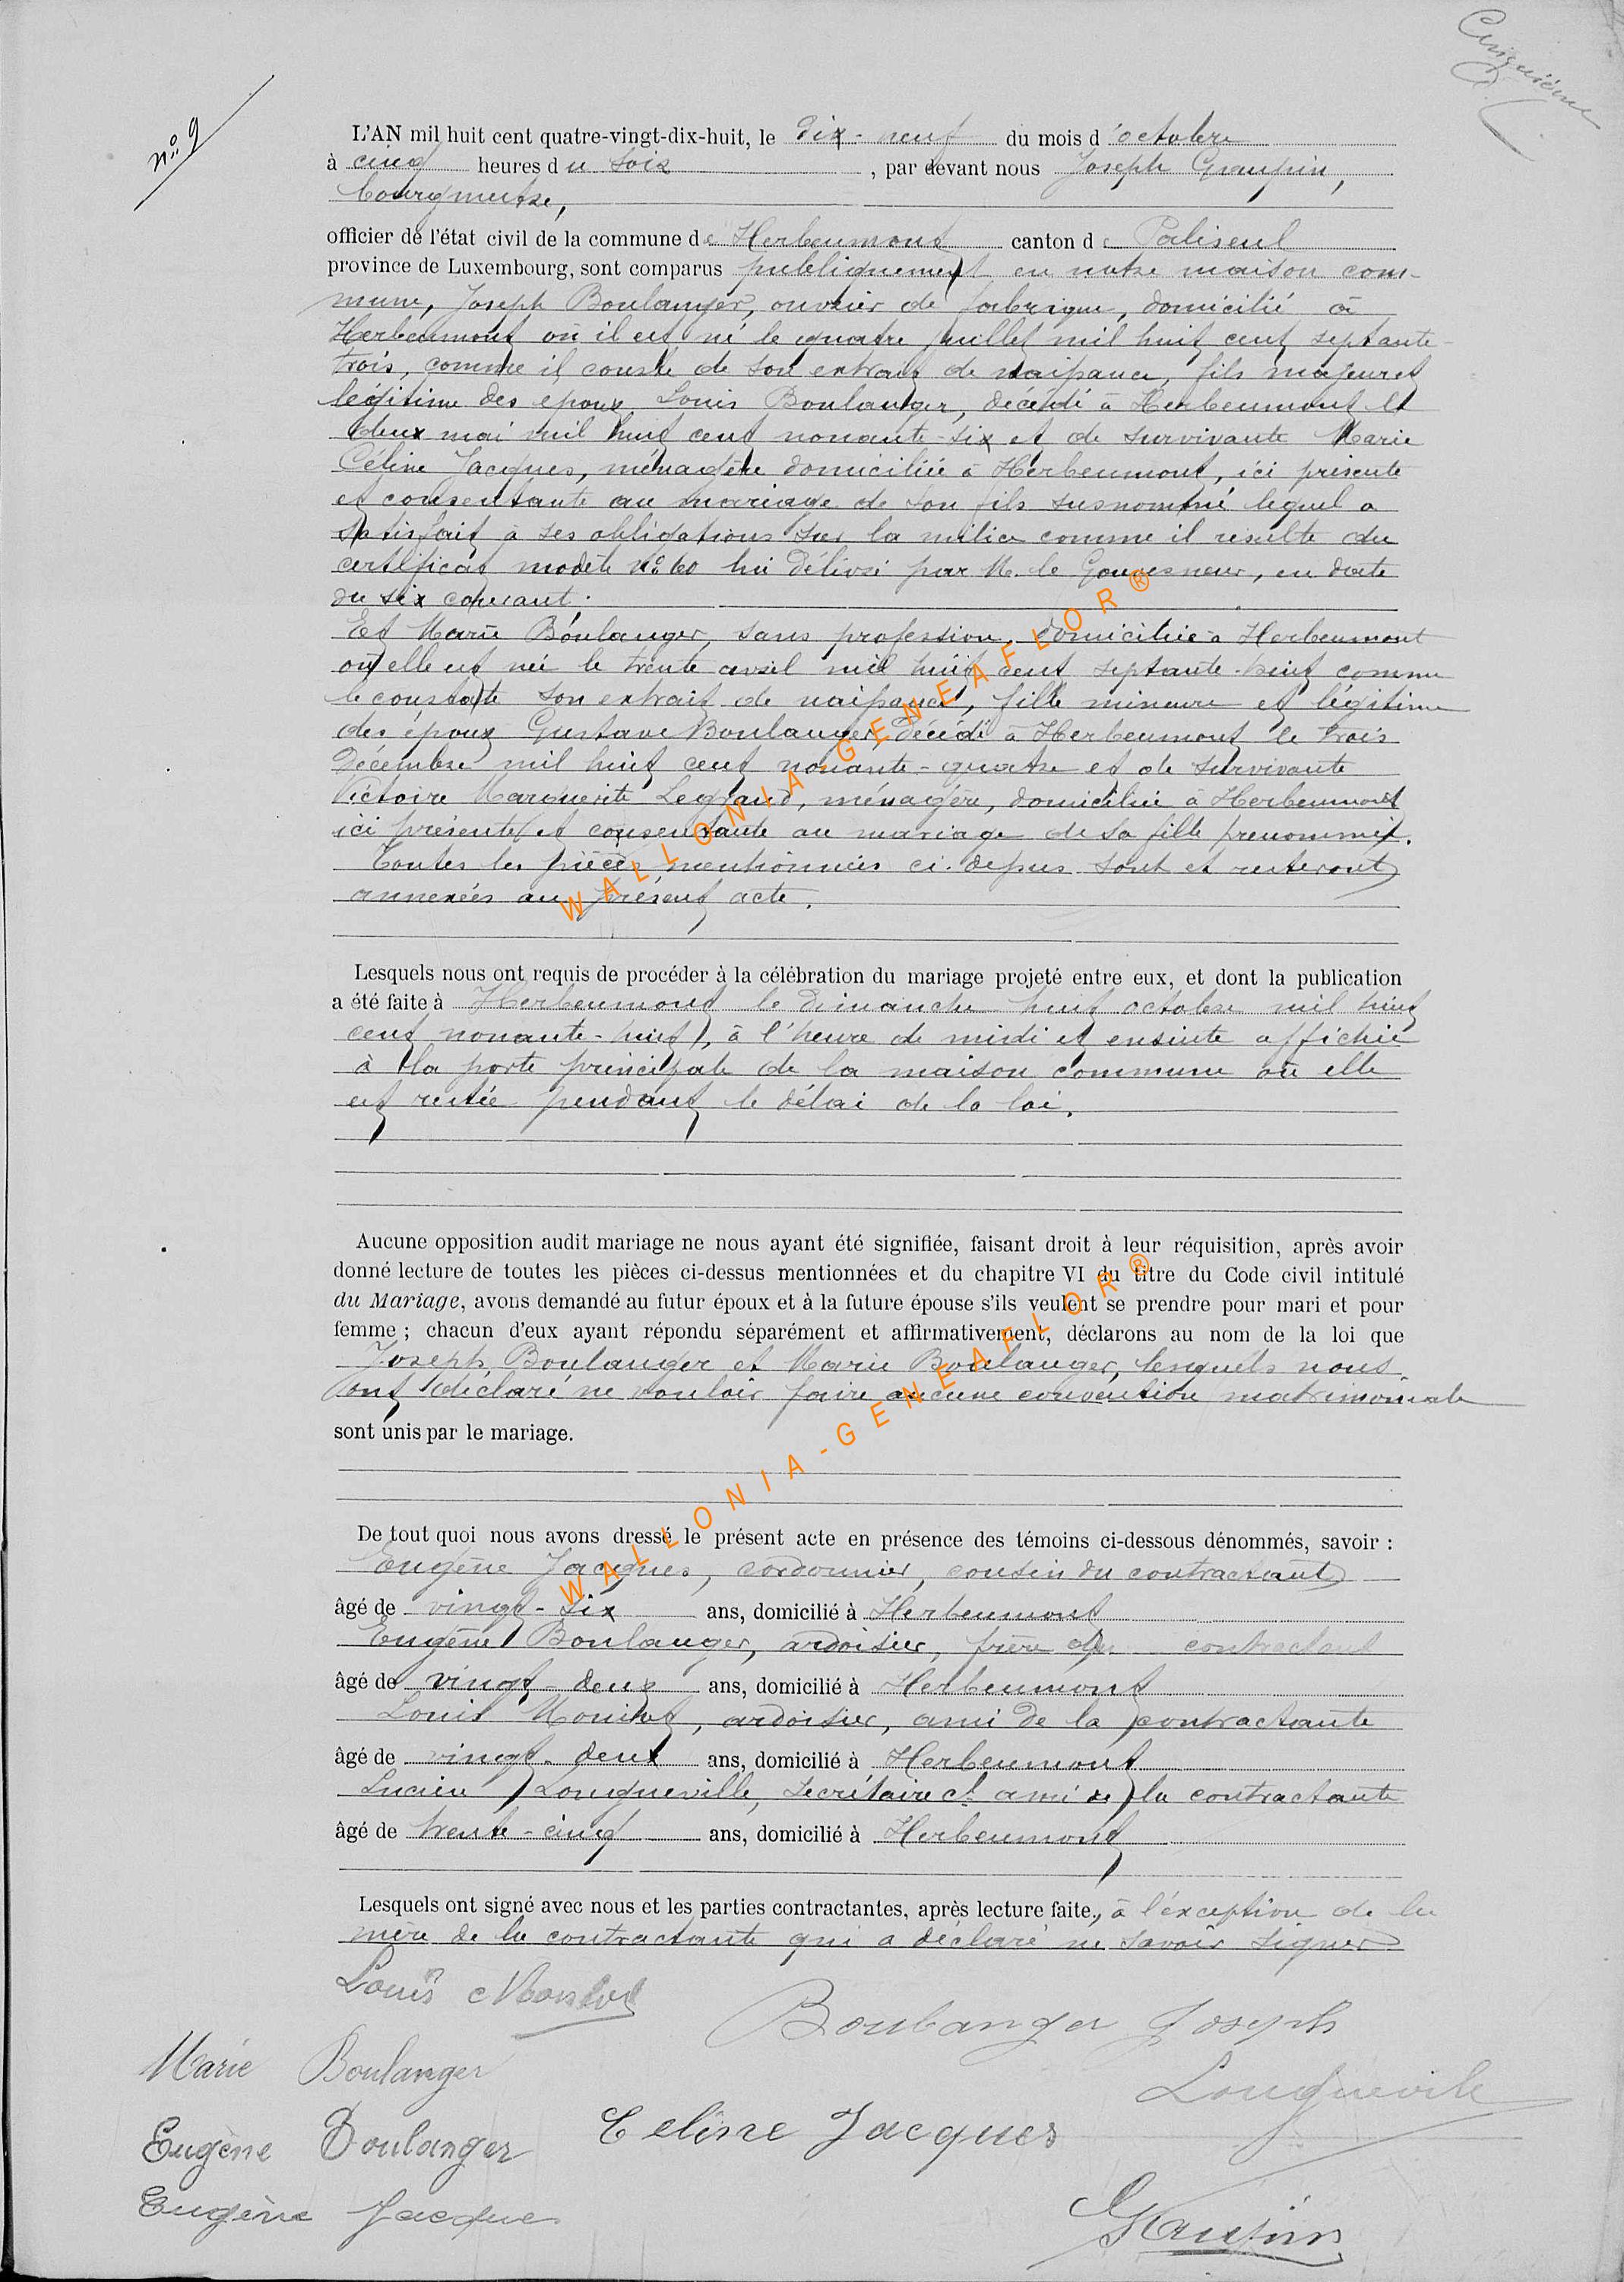 Cinquième
n° 9
L'AN mil huit cent quatre-vingt-dix-huit, le dix-neuf du mois d'octobre
à cinq heures du soir, par devant nous Joseph Graupin,
bourgmestre,
officier de l'état civil de la commune de Herbeumont canton de Paliseul
province de Luxembourg, sont comparus publiquement en notre maison com-
mune, Joseph Boulanger, ouvrier de fabrique, domicilié à
Herbeumont où il est né le quatre juillet mil huit cent septante-
trois, comme il conste de son extrait de naissance, fils majeur et
légitime des époux Louis Boulanger, décédé à Herbeumont le
deux mai mil huit cent nonante-six et de survivante Marie
Céline Jacques, ménagère domiciliée à Herbeumont, ici présente
et consentante au mariage de son fils susnommé lequel a
satisfait à ses obligations sur la milice comme il résulte du
certificat modèle n° 60 lui délivré par M. le Gouverneur, en date
du six courant.
Et Marie Boulanger, sans profession, domiciliée à Herbeumont
où elle est née le trente avril mil huit cent septante-huit comme
le constate son extrait de naissance, fille mineure et légitime
des époux Gustave Boulanger, décédé à Herbeumont le trois
décembre mil huit cent nonante-quatre et de survivante
Victoire Marguerite Legrand, ménagère, domiciliée à Herbeumont
ici présente et consentante au mariage de sa fille prénommée.
Toutes les pièces mentionnées ci-dessus sont et resteront
annexées au présent acte.
Lesquels nous ont requis de procéder à la célébration du mariage projeté entre eux, et dont la publication
a été faite à Herbeumont le dimanche huit octobre mil huit
cent nonante-huit, à l'heure de midi et ensuite affichée
à la porte principale de la maison commune où elle
est restée pendant le délai de la loi.
Aucune opposition audit mariage ne nous ayant été signifiée, faisant droit à leur réquisition, après avoir
donné lecture de toutes les pièces ci-dessus mentionnées et du chapitre VI du titre du Code civil intitulé
du Mariage, avons demandé au futur époux et à la future épouse s'ils veulent se prendre pour mari et pour
femme ; chacun d'eux ayant répondu séparément et affirmativement, déclarons au nom de la loi que
Joseph Boulanger et Marie Boulanger, lesquels nous
ont déclaré ne vouloir faire aucune convention matrimoniale
sont unis par le mariage.
De tout quoi nous avons dressé le présent acte en présence des témoins ci-dessous dénommés, savoir :
Eugène Jacques, cordonnier, cousin du contractant
âgé de vingt-six ans, domicilié à Herbeumont
Eugène Boulanger, ardoisier, frère du contractant
âgé de vingt-deux ans, domicilié à Herbeumont
Louis, ardoisier, ami de la contractante
âgé de vingt-deux ans, domicilié à Herbeumont
Lucien Longueville, secrétaire cl. ami de la contractante
âgé de trente-cinq ans, domicilié à Herbeumont
Lesquels ont signé avec nous et les parties contractantes, après lecture faite, à l'exception de la
mère de la contractante qui a déclaré ne savoir signer
Louis
Boulanger Joseph
Marie Boulanger
Longueville
Eugène Boulanger
Celine Jacques
Eugène Jacques
WALLONIA-GENEAFLOR®
WALLONIA-GENEAFLOR®